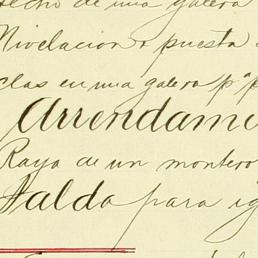 echo de una galera
Nivelacion o puesta
clas en una galera pª p
Arrendami
Raya de un montero
Falda para ig